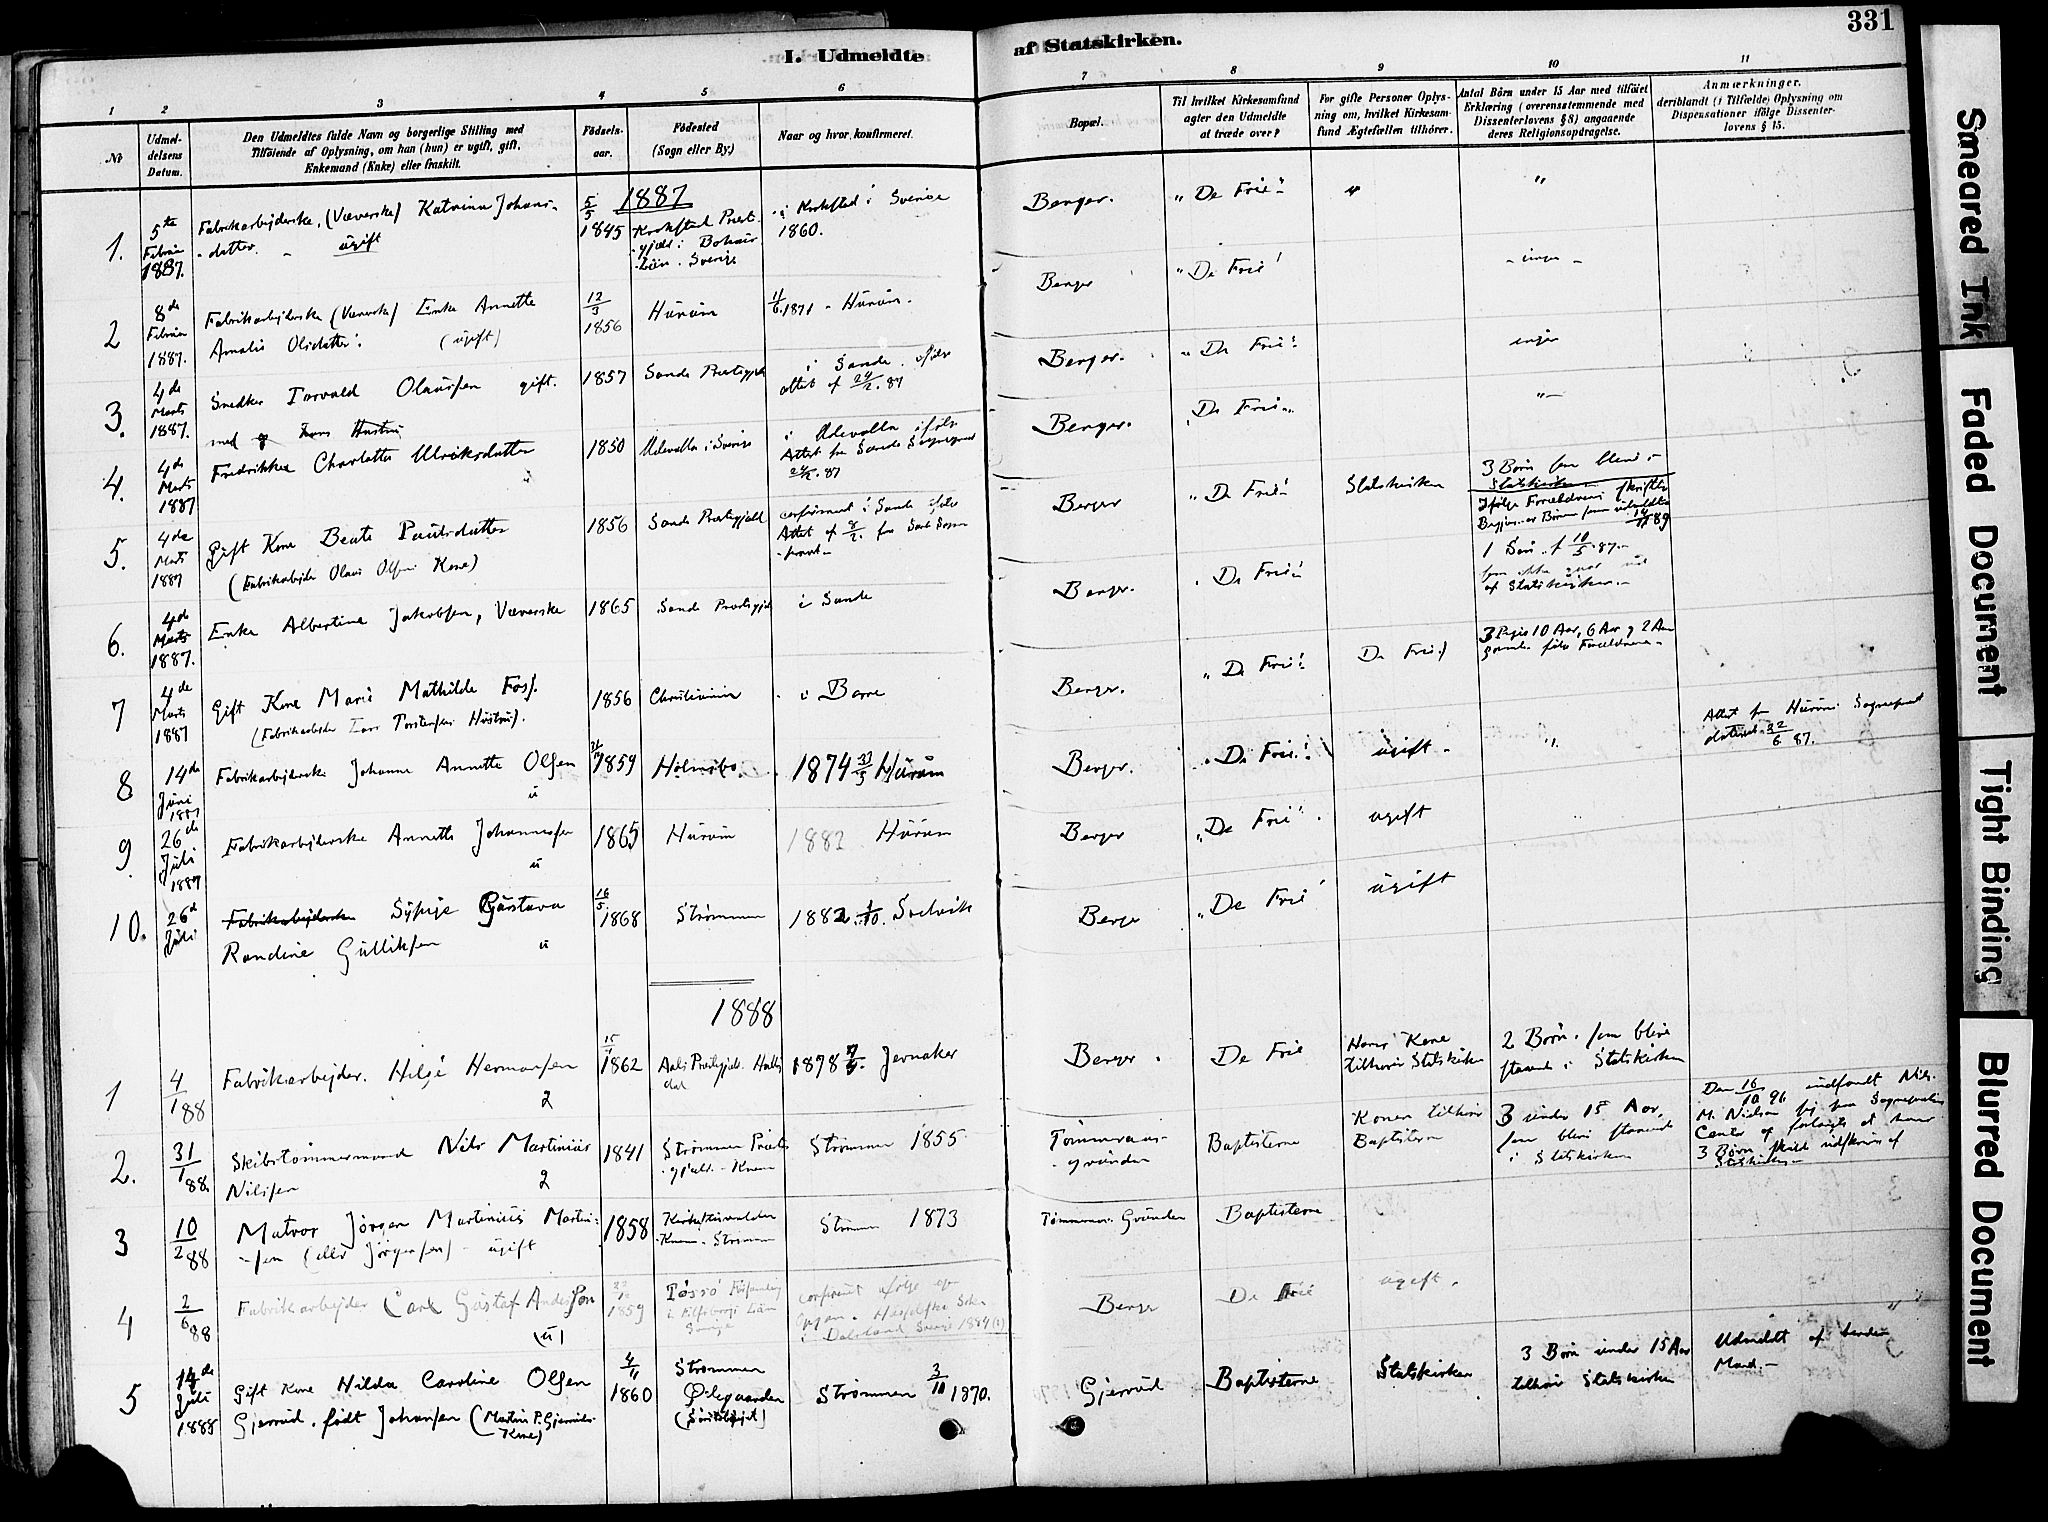 331
I. Udmeldte af Statskirken.
1 2 3 4 5 6 7 8 9 10 11
No
Udmel-
delsens
Datum.
Den Udmeldtes fulde Navn og borgerlige Stilling med
Tilføiende af Oplysning, om han (hun) er ugift, gift,
Enkemand (Enke) eller fraskilt.
Fødsels-
aar.
Fødested
(Sogn eller By.)
Naar og hvor konfirmeret.
Bopæl.
Til hvilket Kirkesamfund
agter den Udmeldte
at træde over?
For gifte Personer Oplys-
ning om, hvilket Kirkesam-
fund Ægtefællen tilhører.
Antal Børn under 15 Aar med tilføiet
Erklæring (overensstemmende med
Dissenterlovens § 8) angaaende
deres Religionsopdragelse.
Anmærkninger,
deriblandt (i Tilfælde) Oplysning om
Dispensationer ifølge Dissenter-
lovens § 15.
1887
1. 5te Februar 1887. Fabrikarbejderske, (Væverske) Katrina Johans-
datter. ugift
5/5 1845 Krokstad Præst-
gjeld i Bohus
Län. Sverige
i Krokstad i Sverige
1860.
Berger. "De Frie" " "
2 8de Februar 1887. Fabrikarbejderske (Væverske) Enke Annette
Amalie Olsdatter. (ugift)
12/3 1856 Hurum 1871 - Hurum.
Berger "De Frie" - ingen -
3. 4de Marts 1887. Snedker Torvald Olaussen gift.
med Hustru
1857 Sande Præstegjeld i Sande ifølge
attest af 24/2. 87
Berger. "De Frie" ingen
4. 4de Marts 1887 Fredrikke Charlotte Ulriksdatter
1850 Udevalla i Sverige i Udevalla ifølge
Attest fra Sande Sognepræst
24/2. 87
Berger. De Frie " -
5. 4de Marts 1887 Gift Kone Beate Paulsdatter
(Fabrikarbejder Olaus Olsens Kone)
1856 Sande Præstegjeld confirmeret i Sande ifølge
Attest af 8/2. fra Sande Sogne-
præst -
Berger "De Frie" Statskirken 3 Børn som blive i
Statskirken
Ifølge Forældrenes skriftlige
Begjæring er Børnene udmeldte 89
6. 4de Marts 1887. Enke Albertine Jakobsen, Væverske
1865 Sande Præstegjeld i Sande
Berger. De Frie" 1 Søn f. 10/5. 87. -
som ikke
af Statskirken. -
7 4de Marts 1887 Gift Kone Marie Mathilde Foss.
(Fabrikarbejder Lars Torstensens Hustru).
1856 Christiania i Borre
Berger. "De Frie" De Frie 3 Piger 10 Aar, 6 Aar og 2 Aar
gamle følge Forældrene -
8 14de Juni 1887 Fabrikarbejderske Johanne Annette Olsen
u
1859 Holmsbo. 1874 Hurum
Berger. "De Frie" ugift - "
Attest fra Hurums Sognepræst
dateret 22/6 87.
9. 26de Juli 1887 Fabrikarbejderske Annette Johannesen
u
1865 Hurum 1882 Hurum
Berger "De Frie" ugift
10. 26d Juli Fabrikarbejderske Sypige Gustava
Randine Gulliksen u
16/5. 1868 Strømmen 1882 1/10. Svelvik
Berger "De Frie" ugift
1888
1 4/1 88 Fabrikarbejder. Helge Hermansen
2
15/ 1862 Aals Præstegjeld. Halling-
dal 1878 Jevnaker
Berger. De Frie Hans Kone
tilhører Statskirken 2 Børn. som blive
staaende i Statskirken
2. 31/1 88. Skibstømmermand Nils Martinius
Nilsen 2
1841 Strømmen Præste-
gjeld. - Strømmen 1855
Tømmeraas-
grunden Baptisterne Konen tilhører
Baptisterne 3 under 15 Aar,
som bleve staaende
i Statskirken
Den 16/10 96 indfandt Nils
M. Nielsen sig for Sognepræsten
og forlangte at hans
3 Børn skulde udskrives af
Statskirken
3 10/2 88 Matros Jørgen Martinius Martin-
sen (eller Jørgensen) - ugift
1858 Strømmen Strømm 1873
Tømmeraas Grunden Baptisterne
4 2/6 88 Fabrikarbejder Carl Gustaf Anderson
(u)
1859 Tøssö Församling
i Elfsborgs Län
Sverige confirmeret ifølge
i Dalsland Sverige 1884 (?)
Berger De Frie ugift. "
5 14de Juli 1888 Gift Kone Hilda Caroline Olsen
Gjerrud. født Johansen (Martin P. Gjerruds
Kone)
4/11 1860 Strømmen
Ødegaarden
Strømmen 3/10 1870.
Gjerrud Baptisterne Statskirken 3 Børn under 15 Aar
tilhører Statskirken Udmeldt af hendes
Mand. -
Smeared Ink
Faded Document
Tight Binding
Blurred Document